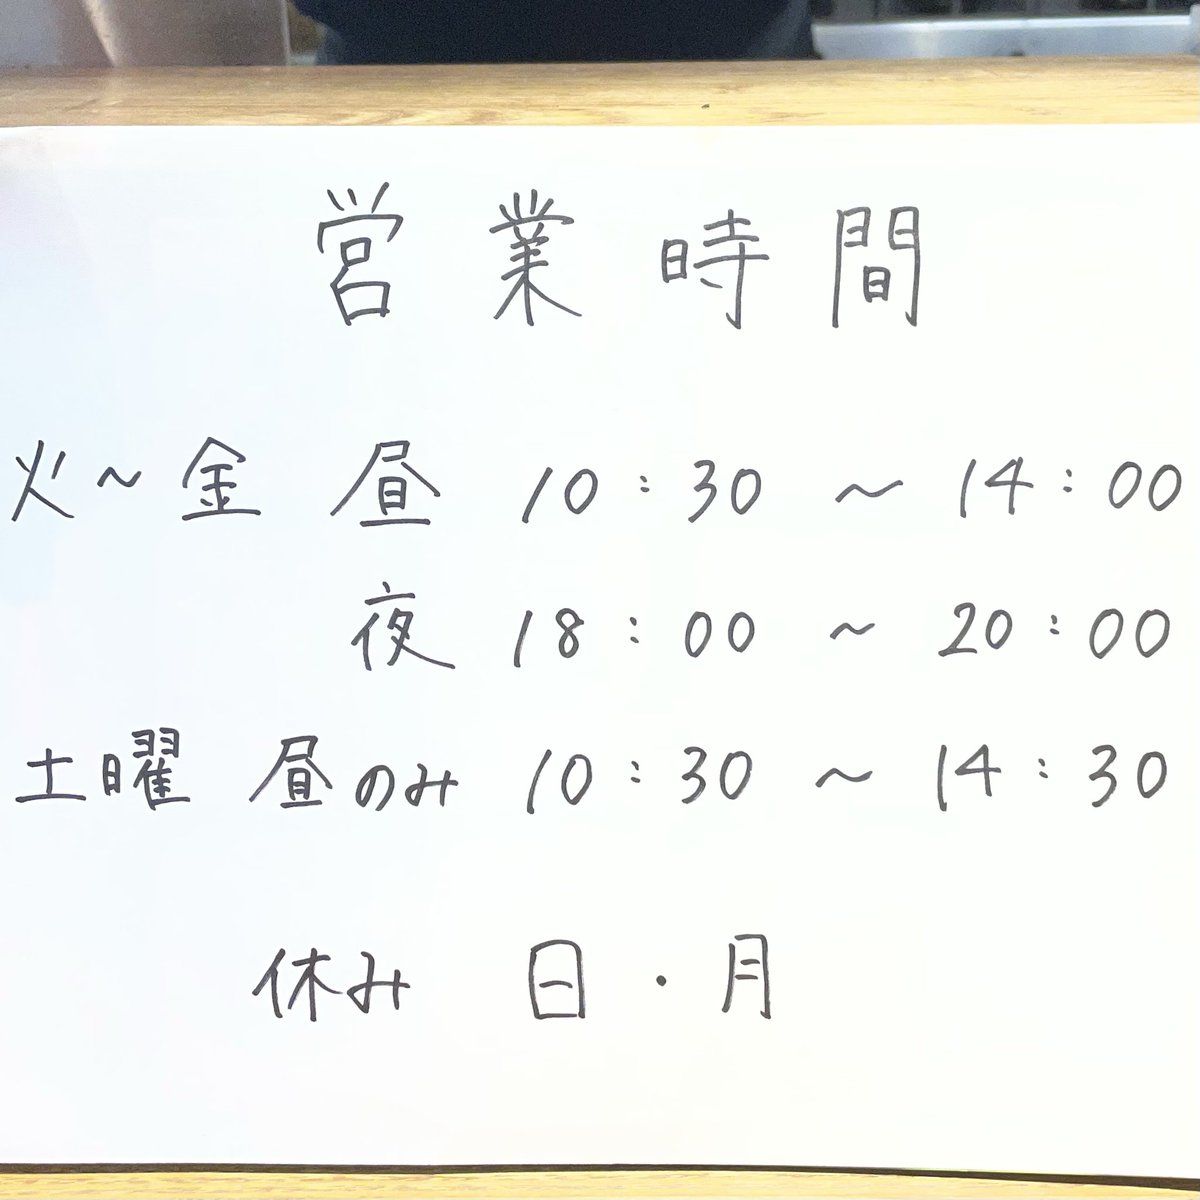 営業時間
火～金 昼 10:30 ～ 14:00
夜 18:00 ～ 20:00
土曜 昼のみ 10:30 ～ 14:30
休み 日・月